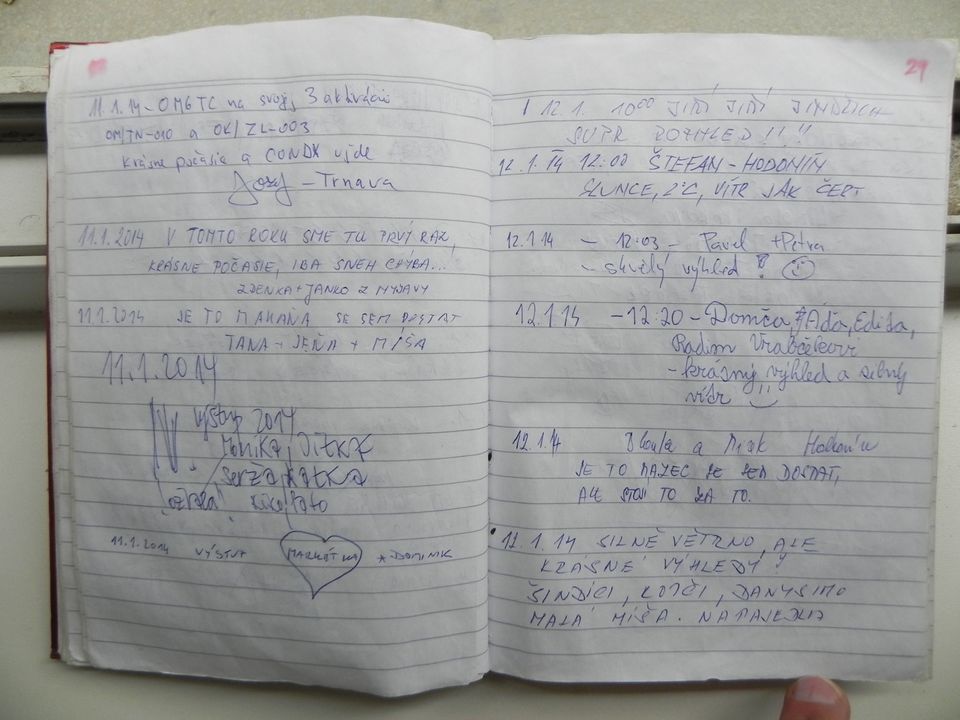 11.1.14 - OM6TC na svojej 3 aktivácii
OM/TN-010 a OK/ZL-003
Krásne počasie a CONDX ujde
Jozef - Trnava
11.1.2014 V TOMTO ROKU SME TU PRVÝ RAZ,
KRÁSNE POČASIE, IBA SNEH CHÝBA...
ZDENKA + JANKO Z MYJAVY
11.1.2014 JE TO MAKAČKA SE SEM DOSTAT
TANA + JEŇA + MÍŠA
11.1.2014
IV. výstup 2014
Monika Jitka
Serža Katka
Foto
11.1.2014 VÝSTUP MARKÉTKA * DOMINIK
29
12.1. 10⁰⁰ JIŘÍ JIŘÍ JINDŘICH
SUPR ROZHLED !!!
12.1.14 12:00 ŠTEFAN - HODONÍN
SLUNCE, 2°C, VÍTR JAK ČERT
12.1.14 - 12:03 - Pavel + Petra
- skvělý výhled !
12.1.14 - 12:20 - Domča, Áďa, Edita,
Radim Vrabčekovi
- krásný výhled a silný
vítr
12.1.14 a Hodonín
JE TO MAZEC SE SEM DOSTAT,
ALE STOJÍ TO ZA TO.
12.1.14 SILNĚ VĚTRNO, ALE
KRÁSNÉ VÝHLEDY!
ŠINDÍCI, KOTČI, DANYSIMO
MALÁ MÍŠA. NAPAJEDLA